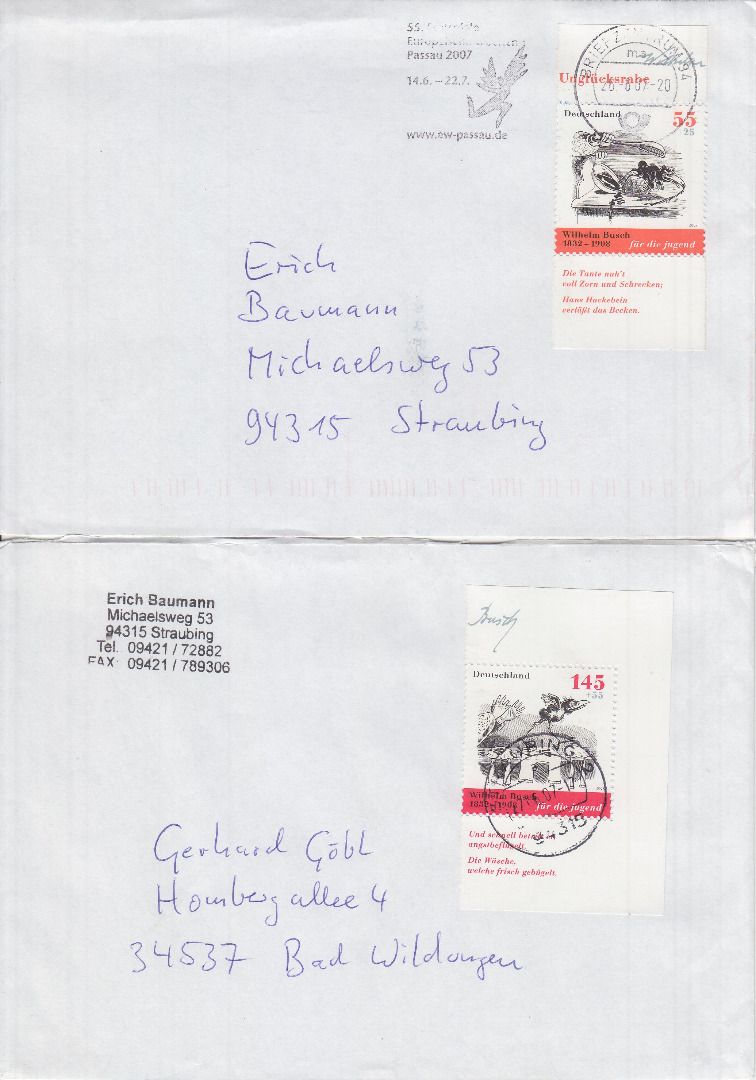 55.
Passau 2007
14.6. – 22.7.
www.ew-passau.de
BRIEFZENTRUM 94
ma
26.-6.07-20
Unglücksrabe
Deutschland
55
25
Wilhelm Busch
1832–1908 für die jugend
Die Tante naht
voll Zorn und Schrecken;
Hans Huckebein
verläßt das Becken.
Erich
Baumann
Michaelsweg 53
94315 Straubing
Erich Baumann
Michaelsweg 53
94315 Straubing
Tel. 09421 / 72882
FAX: 09421 / 789306
Busch
Deutschland
145
+55
Wilhelm Busch
1832–1908 für die jugend
94315
Und schnell
angstbeflügelt
Die Wäsche,
welche frisch gebügelt.
Gerhard Göbl
Hombergallee 4
34537 Bad Wildungen